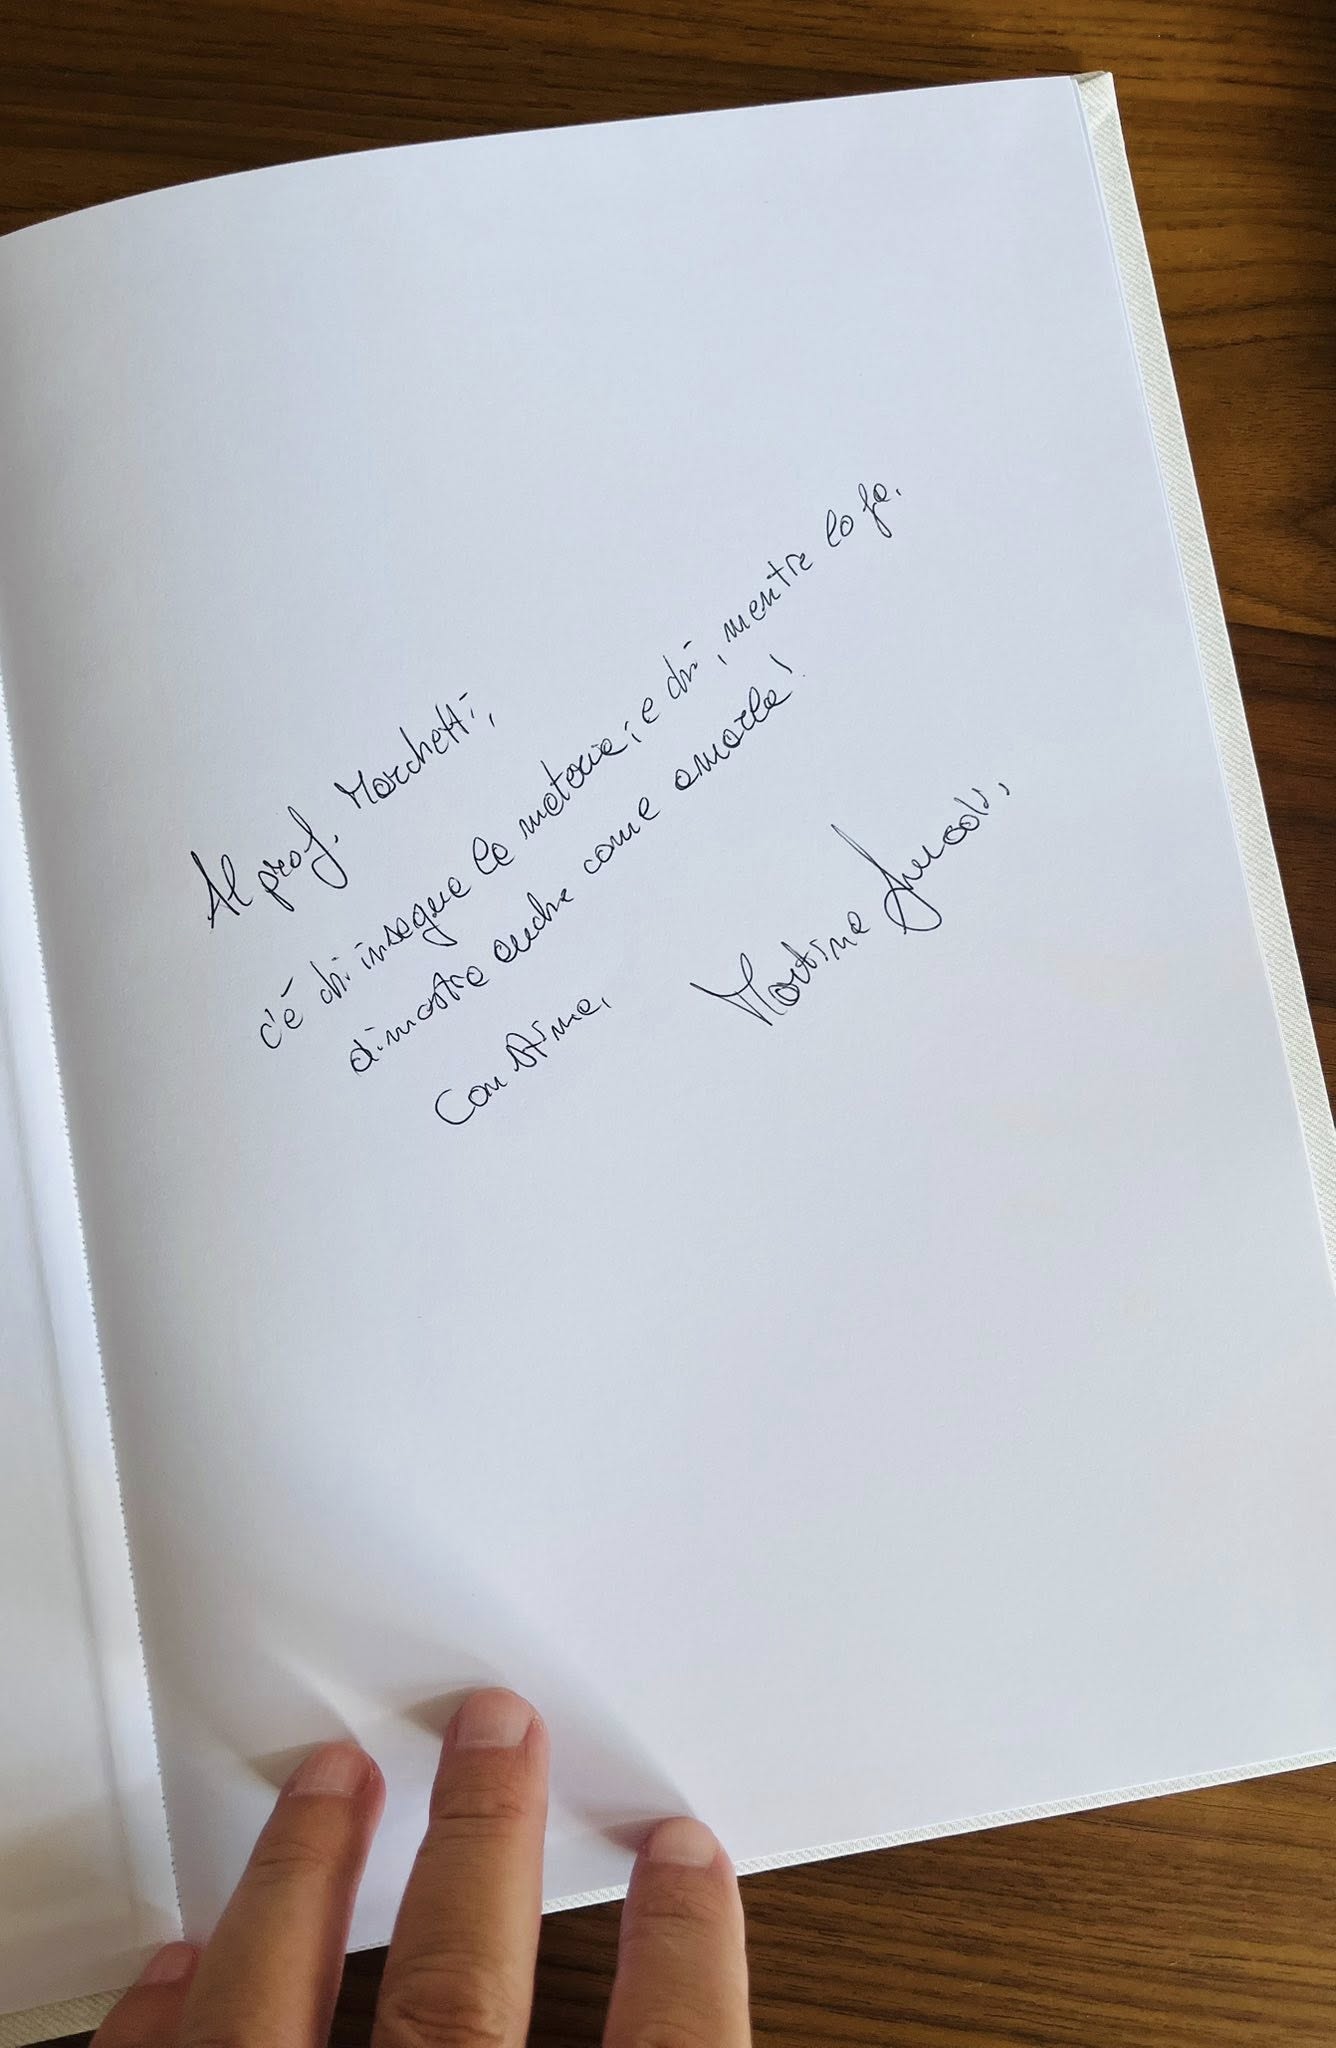 Al prof. Marchetti,
c'è chi insegna la materia; e chi, mentre lo fa,
dimostra anche come amarla!
Con stima,
Martina